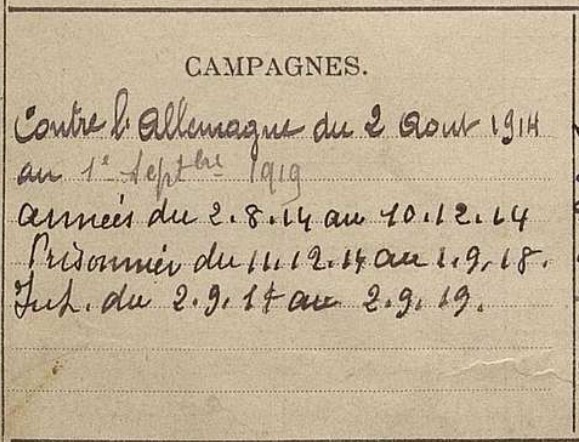 CAMPAGNES.
Contre l'Allemagne du 2 Aout 1914
au 1er Septbre 1919
Armées du 2.8.14 au 10.12.14
Prisonnier du 11.12.14 au 1.9.18.
Int. du 2.9.18 au 2.9.19.